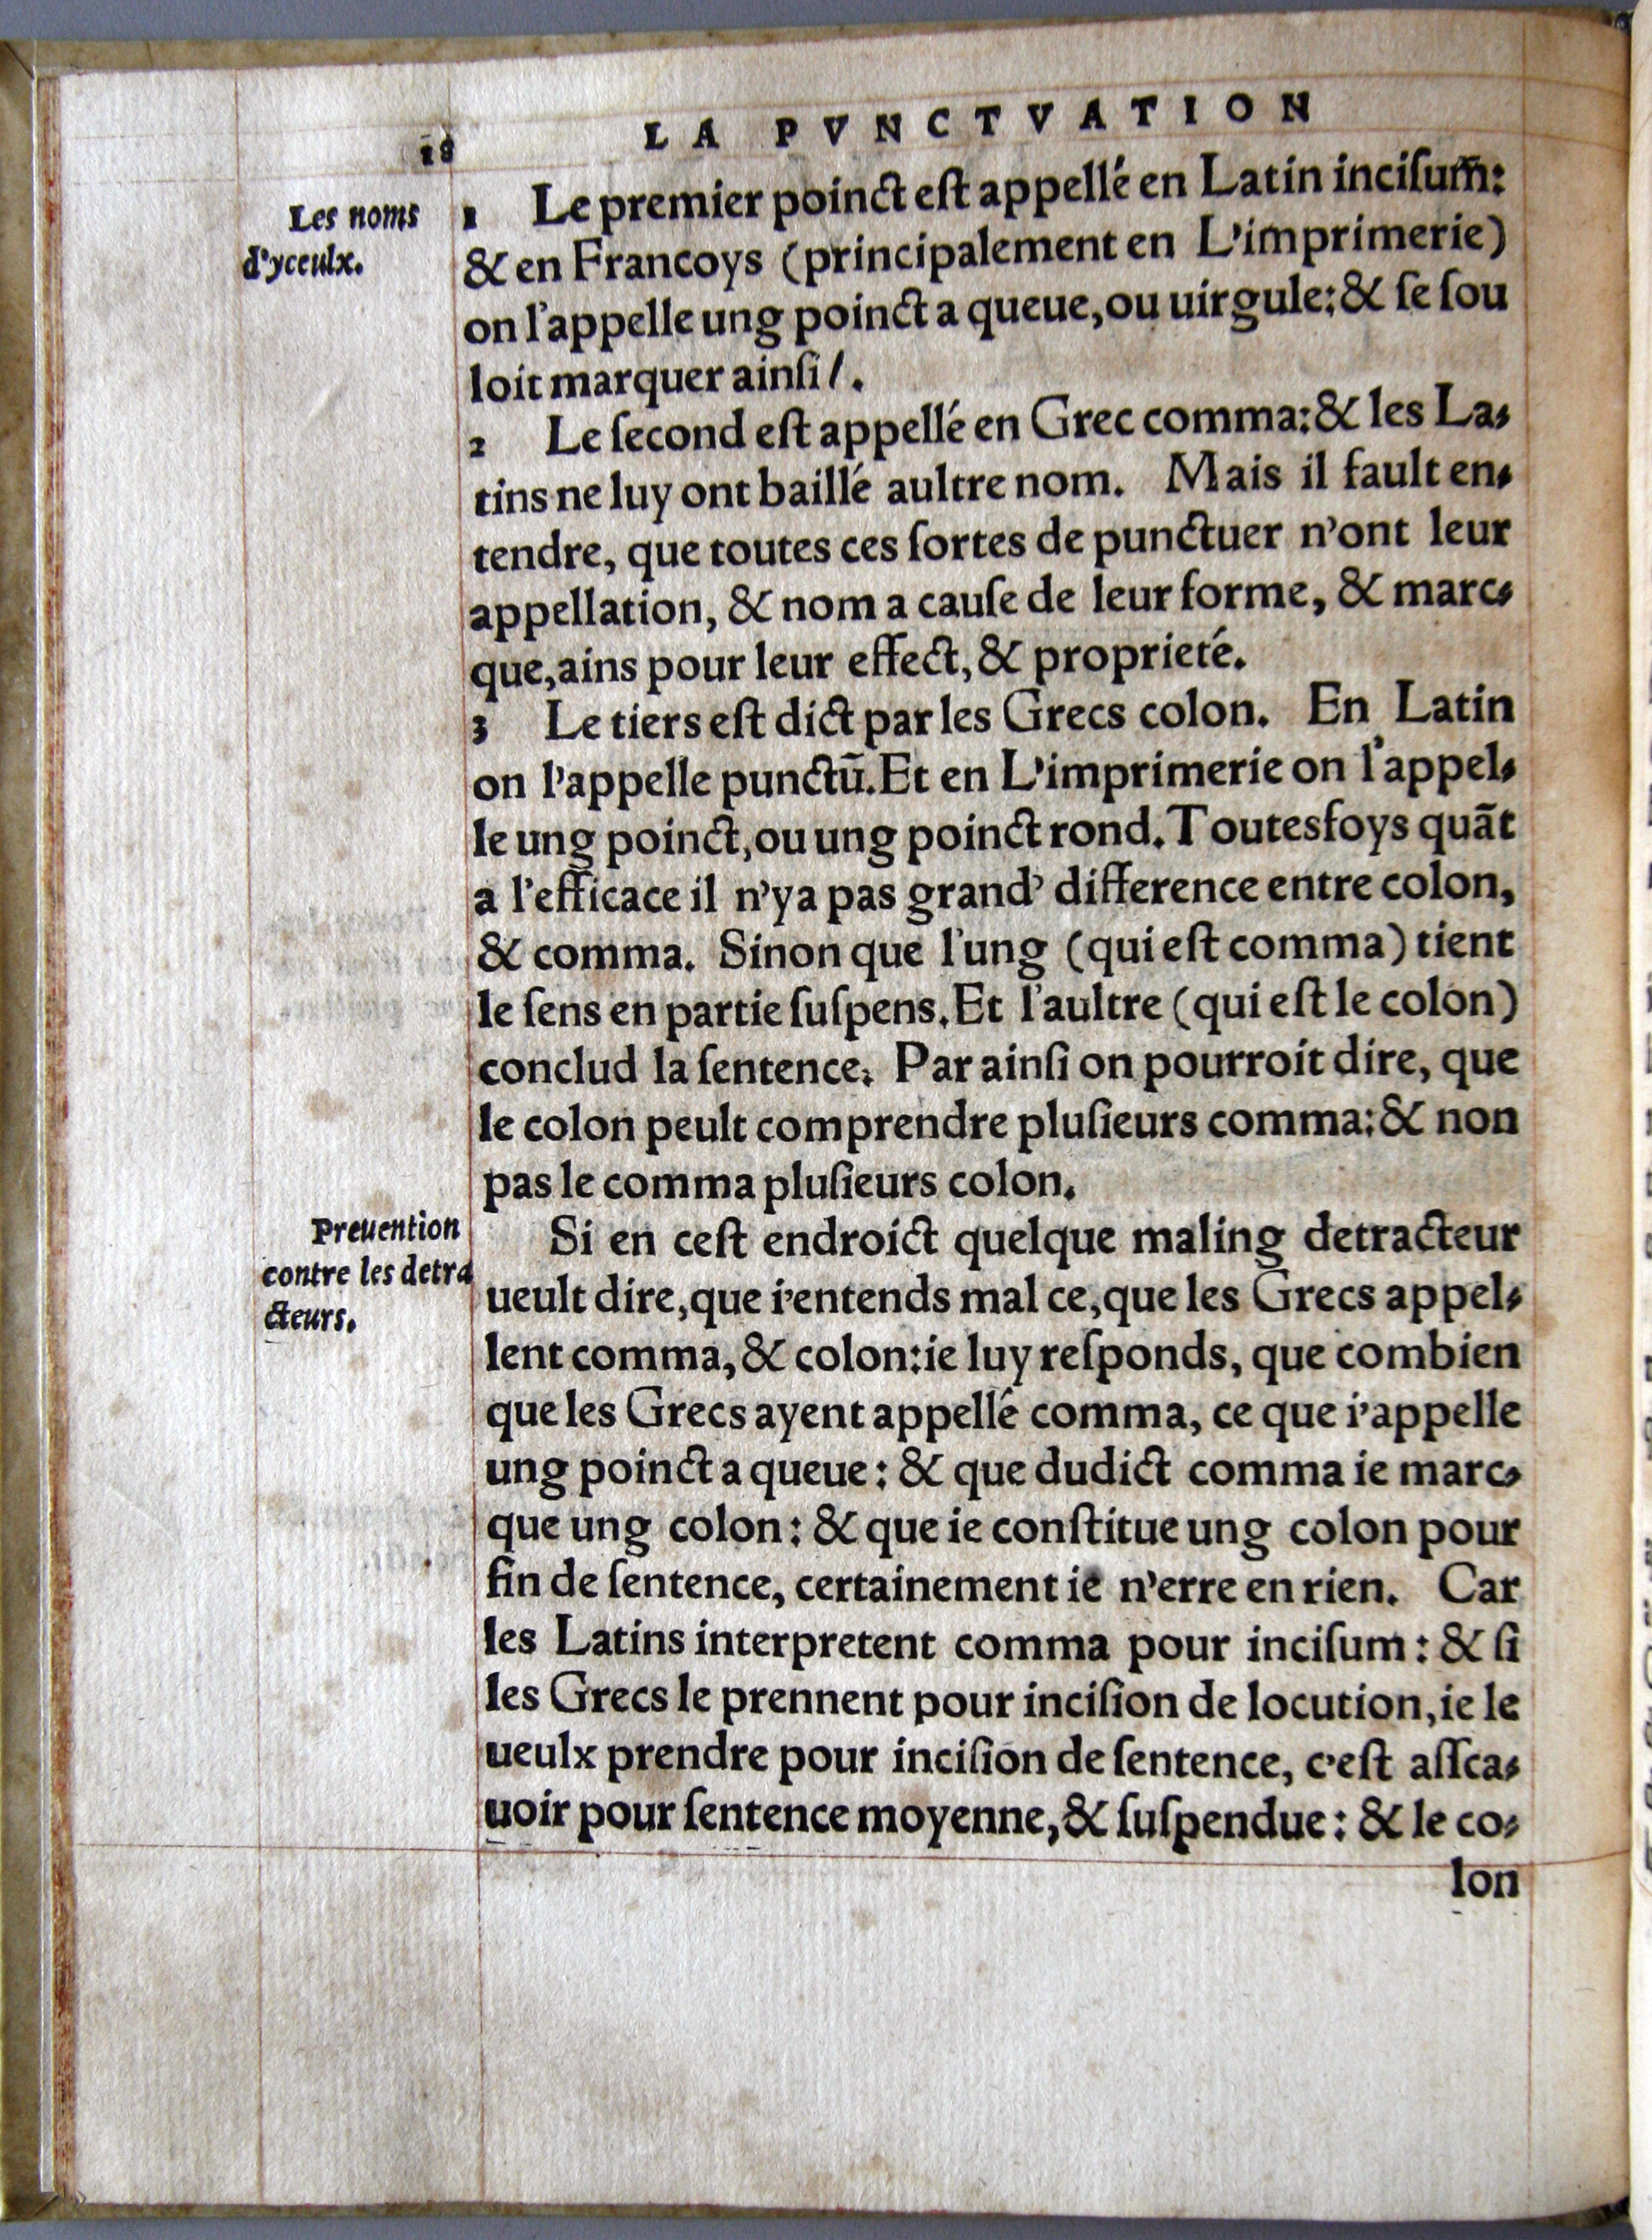 18
LA PVNCTVATION
Les noms
d'yceulx.
1 Le premier poinct eſt appellé en Latin inciſum̃:
& en Francoys (principalement en L'imprimerie)
on l'appelle ung poinct a queue, ou uirgule: & ſe ſou
loit marquer ainſi /.
2 Le ſecond eſt appellé en Grec comma: & les La-
tins ne luy ont baillé aultre nom. Mais il fault en-
tendre, que toutes ces ſortes de punctuer n'ont leur
appellation, & nom a cauſe de leur forme, & marc-
que, ains pour leur effect, & proprieté.
3 Le tiers eſt dict par les Grecs colon. En Latin
on l'appelle punctũ. Et en L'imprimerie on l'appel-
le ung poinct, ou ung poinct rond. Toutesfoys quãt
a l'efficace il n'ya pas grand' difference entre colon,
& comma. Sinon que l'ung (qui eſt comma) tient
le ſens en partie ſuſpens. Et l'aultre (qui eſt le colon)
conclud la ſentence. Par ainſi on pourroit dire, que
le colon peult comprendre pluſieurs comma: & non
pas le comma pluſieurs colon.
Preuention
contre les detra
cteurs.
Si en ceſt endroict quelque maling detracteur
ueult dire, que i'entends mal ce, que les Grecs appel-
lent comma, & colon: ie luy reſponds, que combien
que les Grecs ayent appellé comma, ce que i'appelle
ung poinct a queue: & que dudict comma ie marc-
que ung colon: & que ie conſtitue ung colon pour
fin de ſentence, certainement ie n'erre en rien. Car
les Latins interpretent comma pour inciſum: & ſi
les Grecs le prennent pour inciſion de locution, ie le
ueulx prendre pour inciſion de ſentence, c'eſt aſſca-
uoir pour ſentence moyenne, & ſuſpendue: & le co-
lon